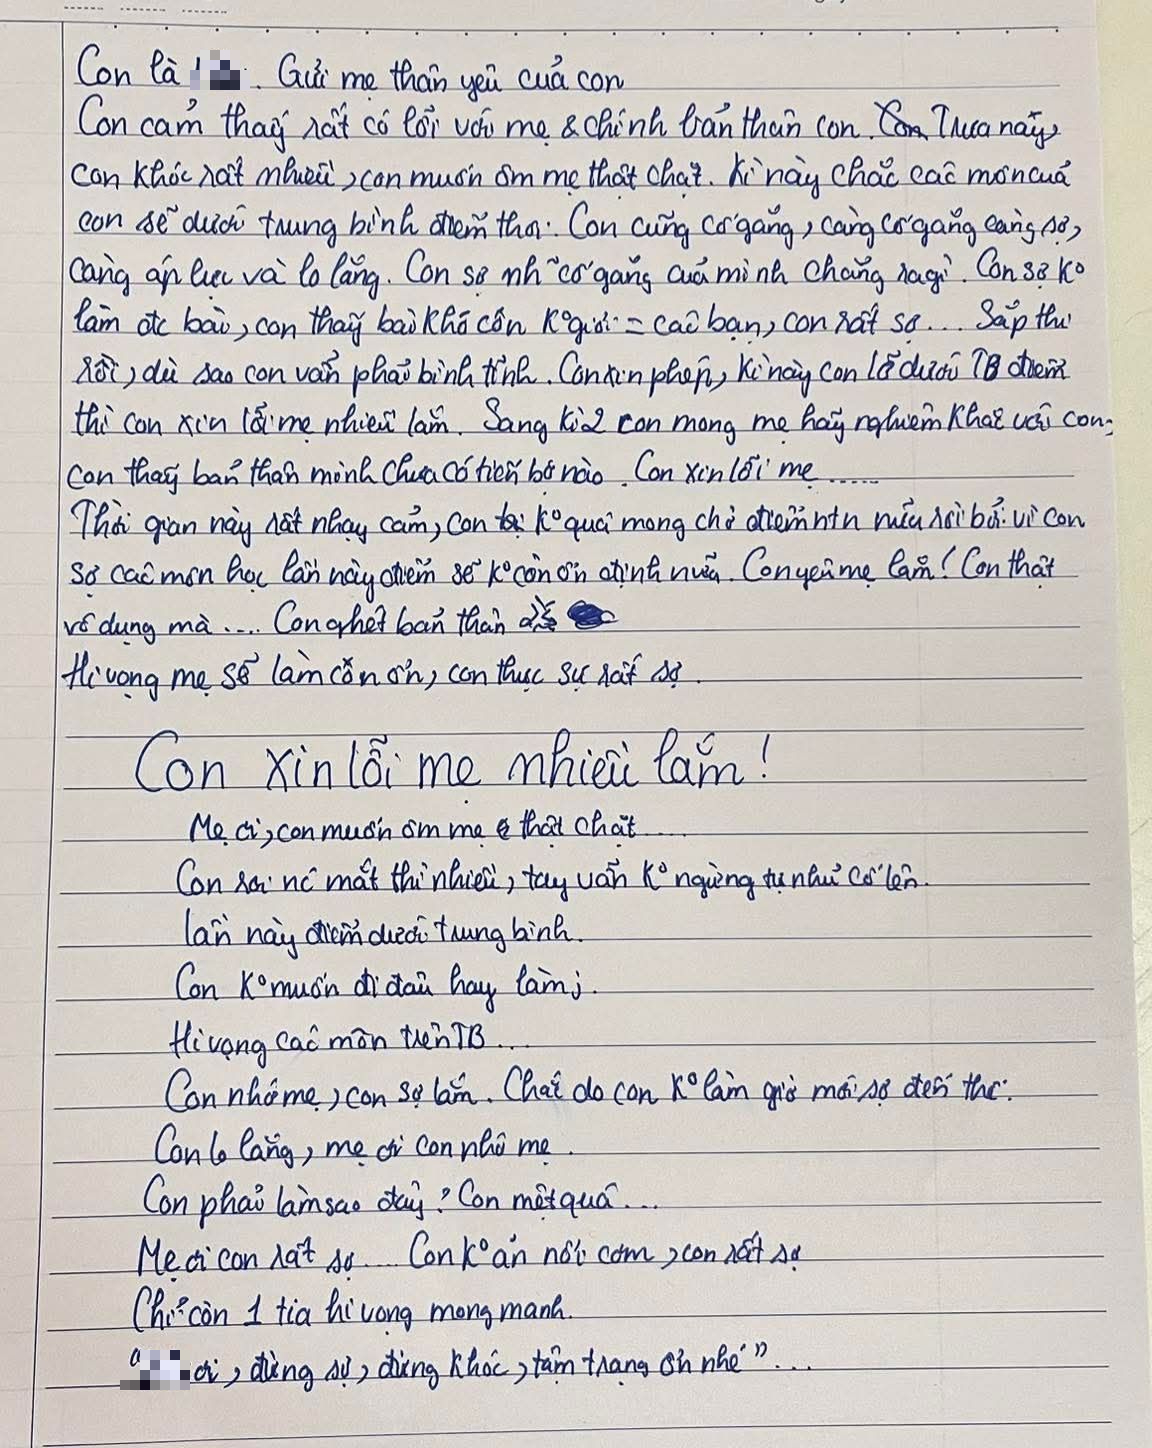 Con là . Gửi mẹ thân yêu của con
Con cảm thấy rất có lỗi với mẹ & chính bản thân con. Trưa nay,
con khóc rất nhiều, con muốn ôm mẹ thật chặt. Kì này chắc các môn của
con sẽ dưới trung bình điểm thôi. Con cũng cố gắng, càng cố gắng càng sợ,
càng áp lực và lo lắng. Con sợ nh~ cố gắng của mình chẳng ra gì. Con sợ K°
làm đc bài, con thấy bài khó còn K° giỏi = các bạn, con rất sợ... Sắp thi
rồi, dù sao con vẫn phải bình tĩnh. Con xin phép, kì này con lỡ dưới TB điểm
thì con xin lỗi mẹ nhiều lắm. Sang kì 2 con mong mẹ hãy nghiêm khắc với con,
con thấy bản thân mình chưa có tiến bộ nào. Con xin lỗi mẹ......
Thời gian này rất nhạy cảm, con K° quá mong chờ điểm ntn nữa rồi bởi vì con
sợ các môn học lần này điểm sẽ K° còn ổn định nữa. Con yêu mẹ lắm! Con thật
vô dụng mà.... Con ghét bản thân
Hi vọng mẹ sẽ làm còn ổn, con thực sự rất sợ.
Con xin lỗi mẹ nhiều lắm!
Mẹ ơi, con muốn ôm mẹ thật chặt.....
Con rơi nc mắt thì nhiều, tay vẫn K° ngừng tự nhủ cố lên.
lần này điểm dưới trung bình.
Con K° muốn đi đâu hay làm j.
Hi vọng các môn trên TB...
Con nhớ mẹ, con sợ lắm. Chắc do con K° làm giờ mới sợ đến thế.
Con lo lắng, mẹ ơi con nhớ mẹ.
Con phải làm sao đây? Con mệt quá...
Mẹ ơi con rất sợ.... Con K° ăn nổi cơm, con rất sợ
Chỉ còn 1 tia hi vọng mong manh.
" ơi, đừng sợ, đừng khóc, tâm trạng ổn nhé"...